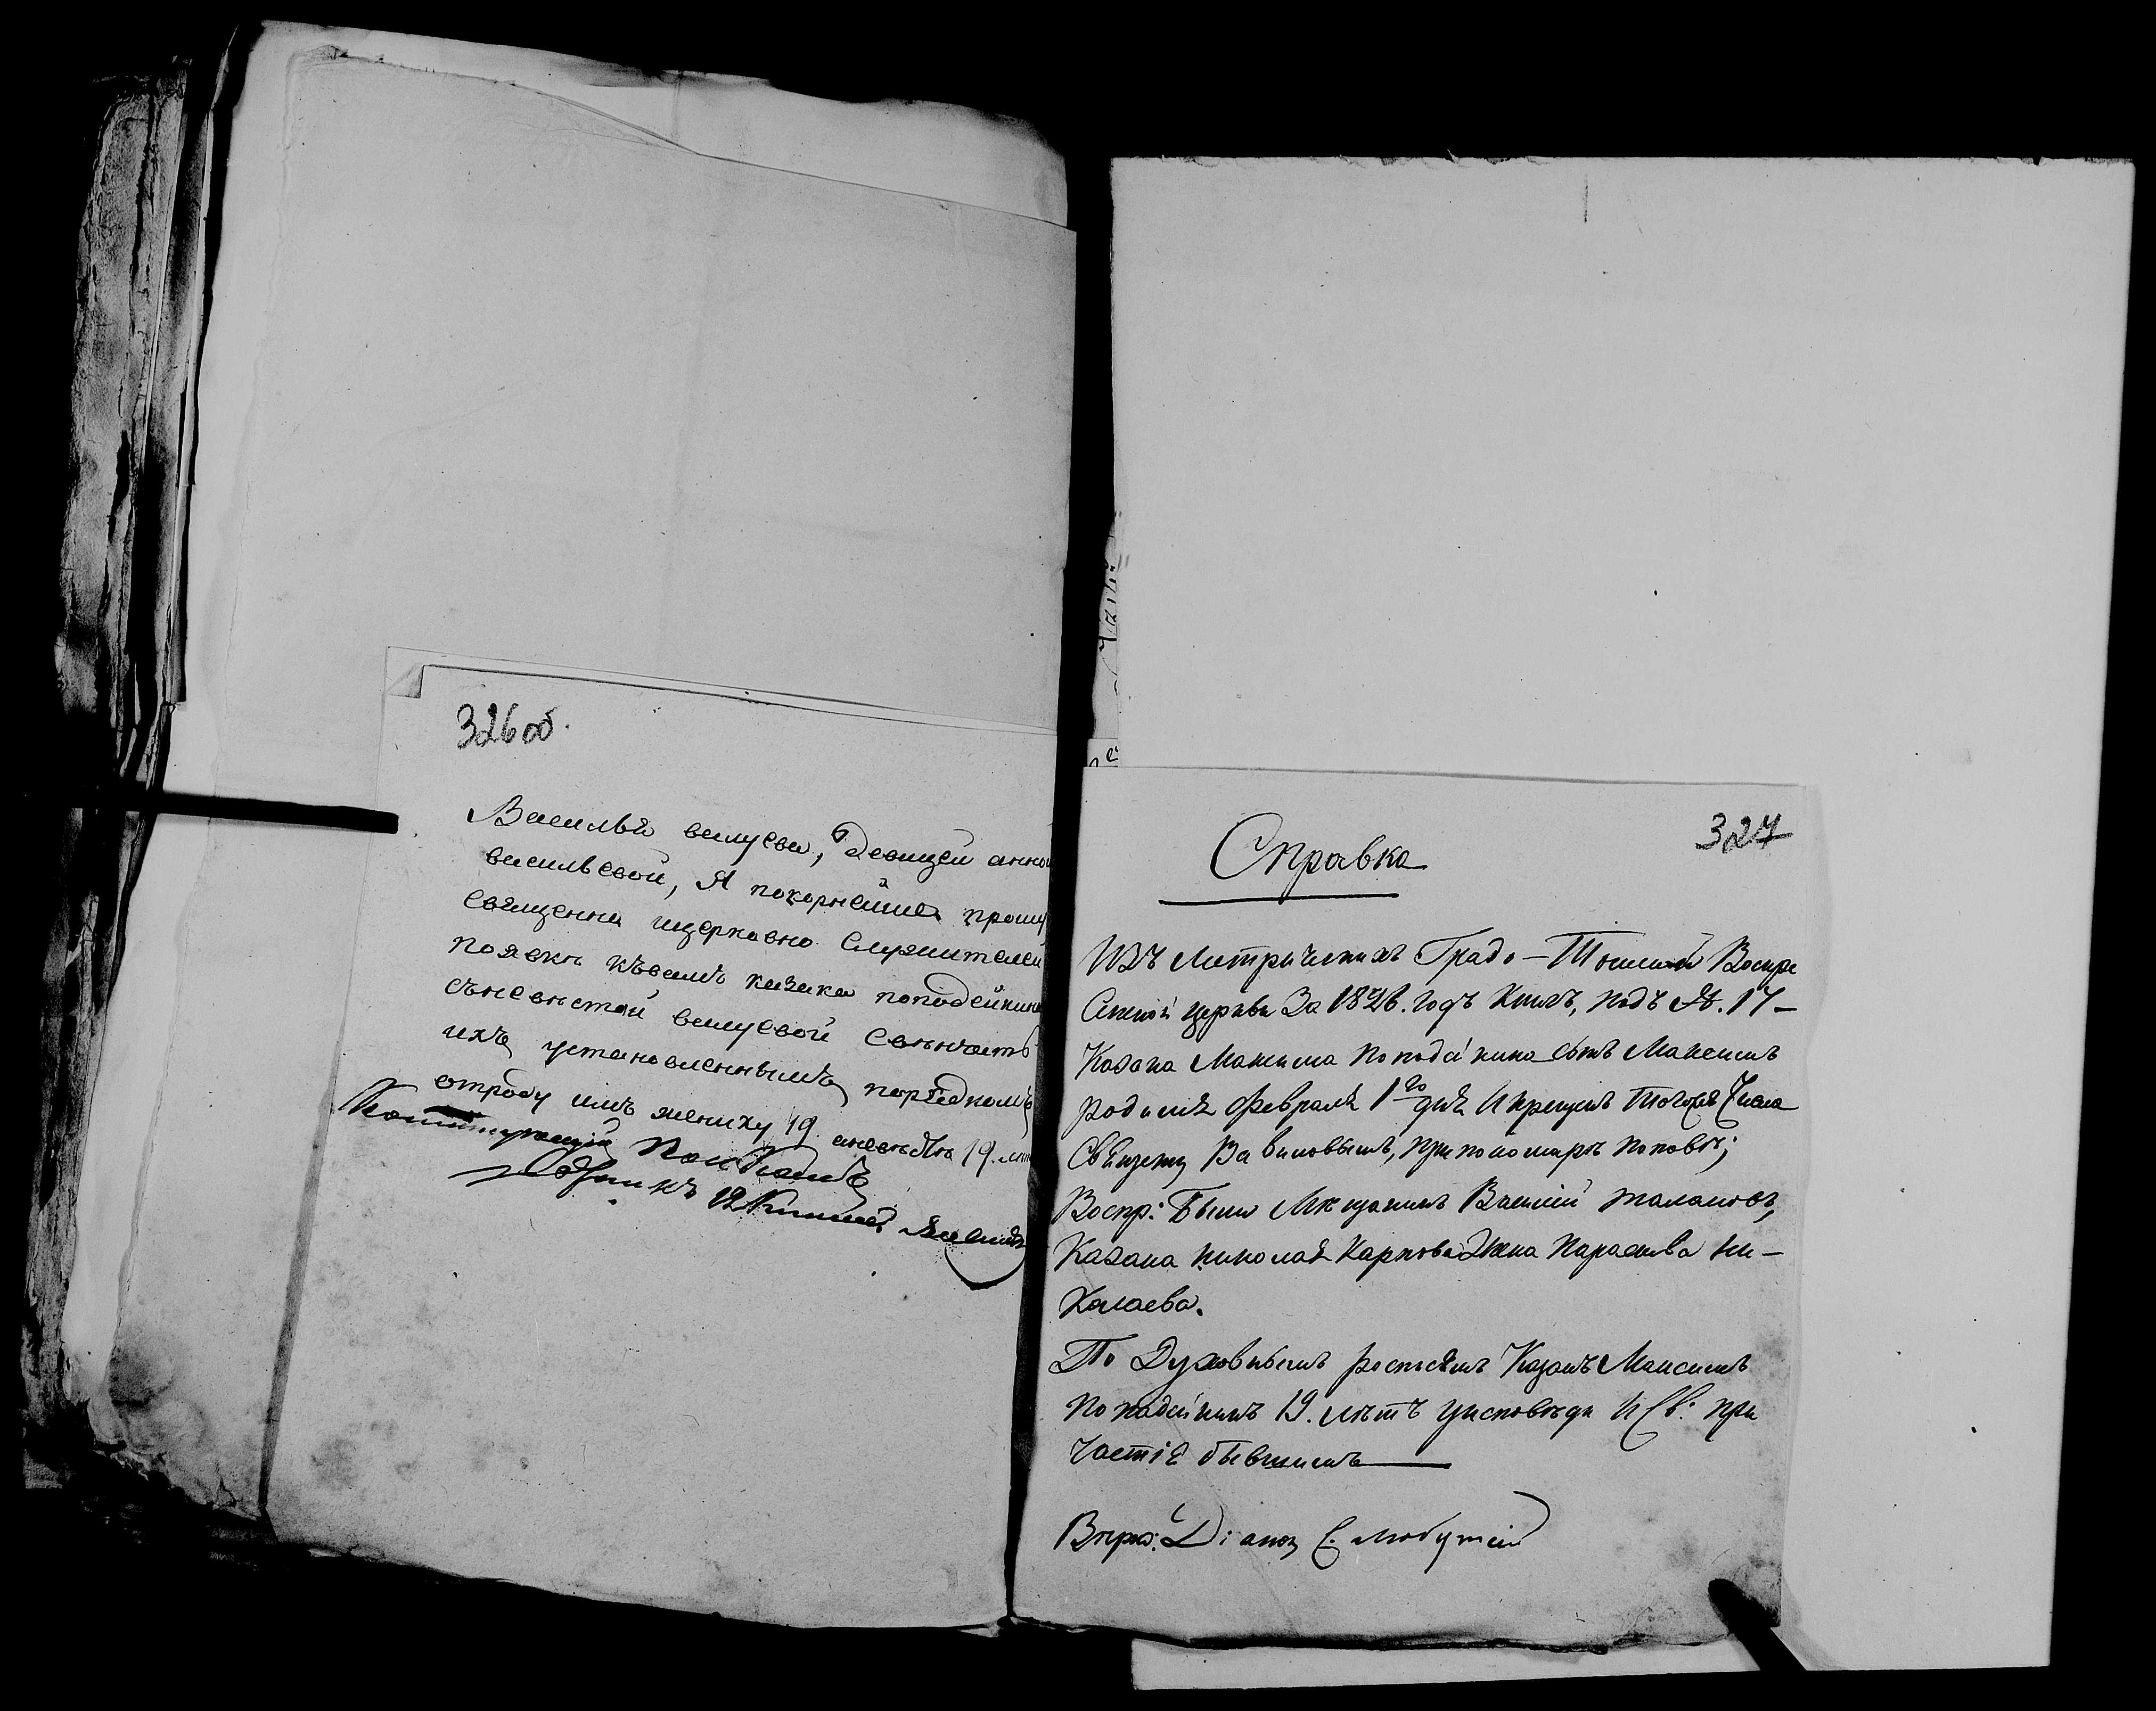 326 об.
Василья вилуева, Девицей анной
васильевой, Я покорнейше прошу
священна ицерковно служителей
появки къвамъ казака поподейкина
съневестой вилуевой свѣнчать
ихъ установленнымъ порядкомъ
отроду имъ жениху 19. аневѣстѣ 19. лѣт
Командующій
Сотникъ
327
Справка
Изъ Метрическихъ Градо-Томской Воскре
сенской церкви За 1826. годъ Книгъ, подъ №. 17-
Казака Максима Поподейкина сынъ Максимъ
родился февраля 1го дня Икрещенъ Тогоже Числа
Священ: Вавиловымъ, при пономарѣ Поповѣ;
Воспр: Были Мѣщанинъ Василій Талановъ,
Казака Николая Карпова Жена Парасковья Ни-
Колаева.
По Духовнымъ росписямъ Казакъ Максимъ
Поподейкинъ 19. лѣтъ уисповѣди И Св: при
частія бывшимъ